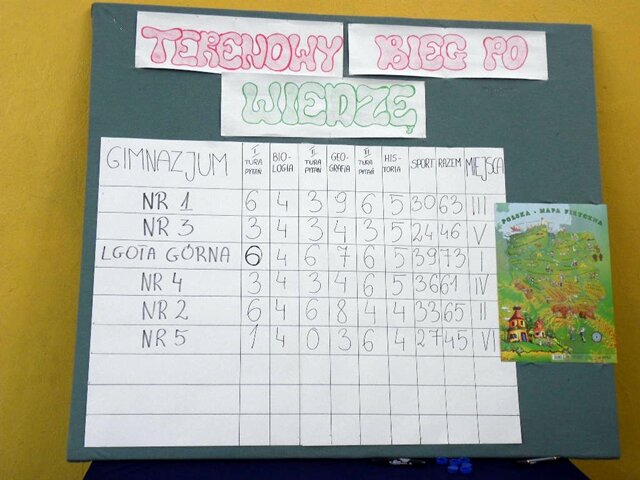 TERENOWY BIEG PO
WIEDZĘ
GIMNAZJUM I TURA PYTAŃ BIO-LOGIA II TURA PYTAŃ GEO-GRAFIA III TURA PYTAŃ HIS-TORIA SPORT RAZEM MIEJSCA
NR 1 6 4 3 9 6 5 30 63 III
NR 3 3 4 3 4 3 5 24 46 V
LGOTA GÓRNA 6 4 6 7 6 5 39 73 I
NR 4 3 4 3 4 6 5 36 61 IV
NR 2 6 4 6 8 4 4 33 65 II
NR 5 1 4 0 3 6 4 27 45 VI
POLSKA - MAPA FIZYCZNA